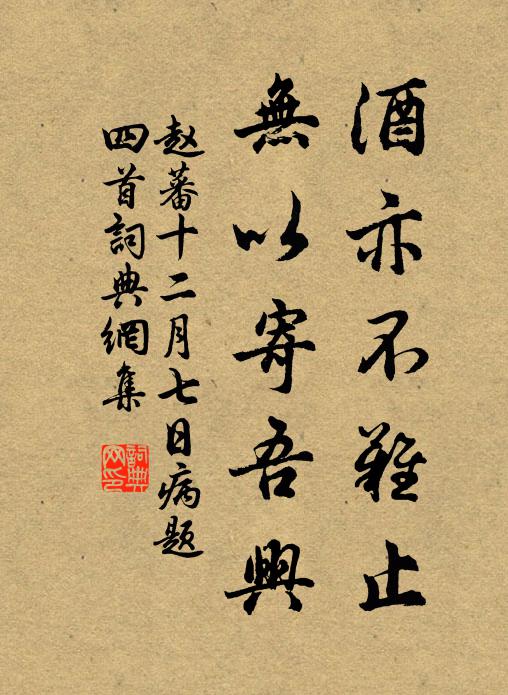 酒亦不難止
無以寄吾興
赵蕃十二月七日病题
四首詞典網集
詞典網印